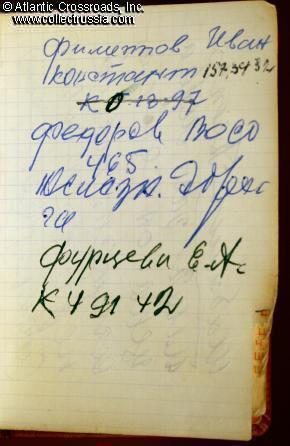 © Atlantic Crossroads, Inc.
www.collectrussia.com
Филиппов Иван
Константи 157.34.32
К 0 13 97
Федоров
465
Фурцева Е.А.
К 4 91 42